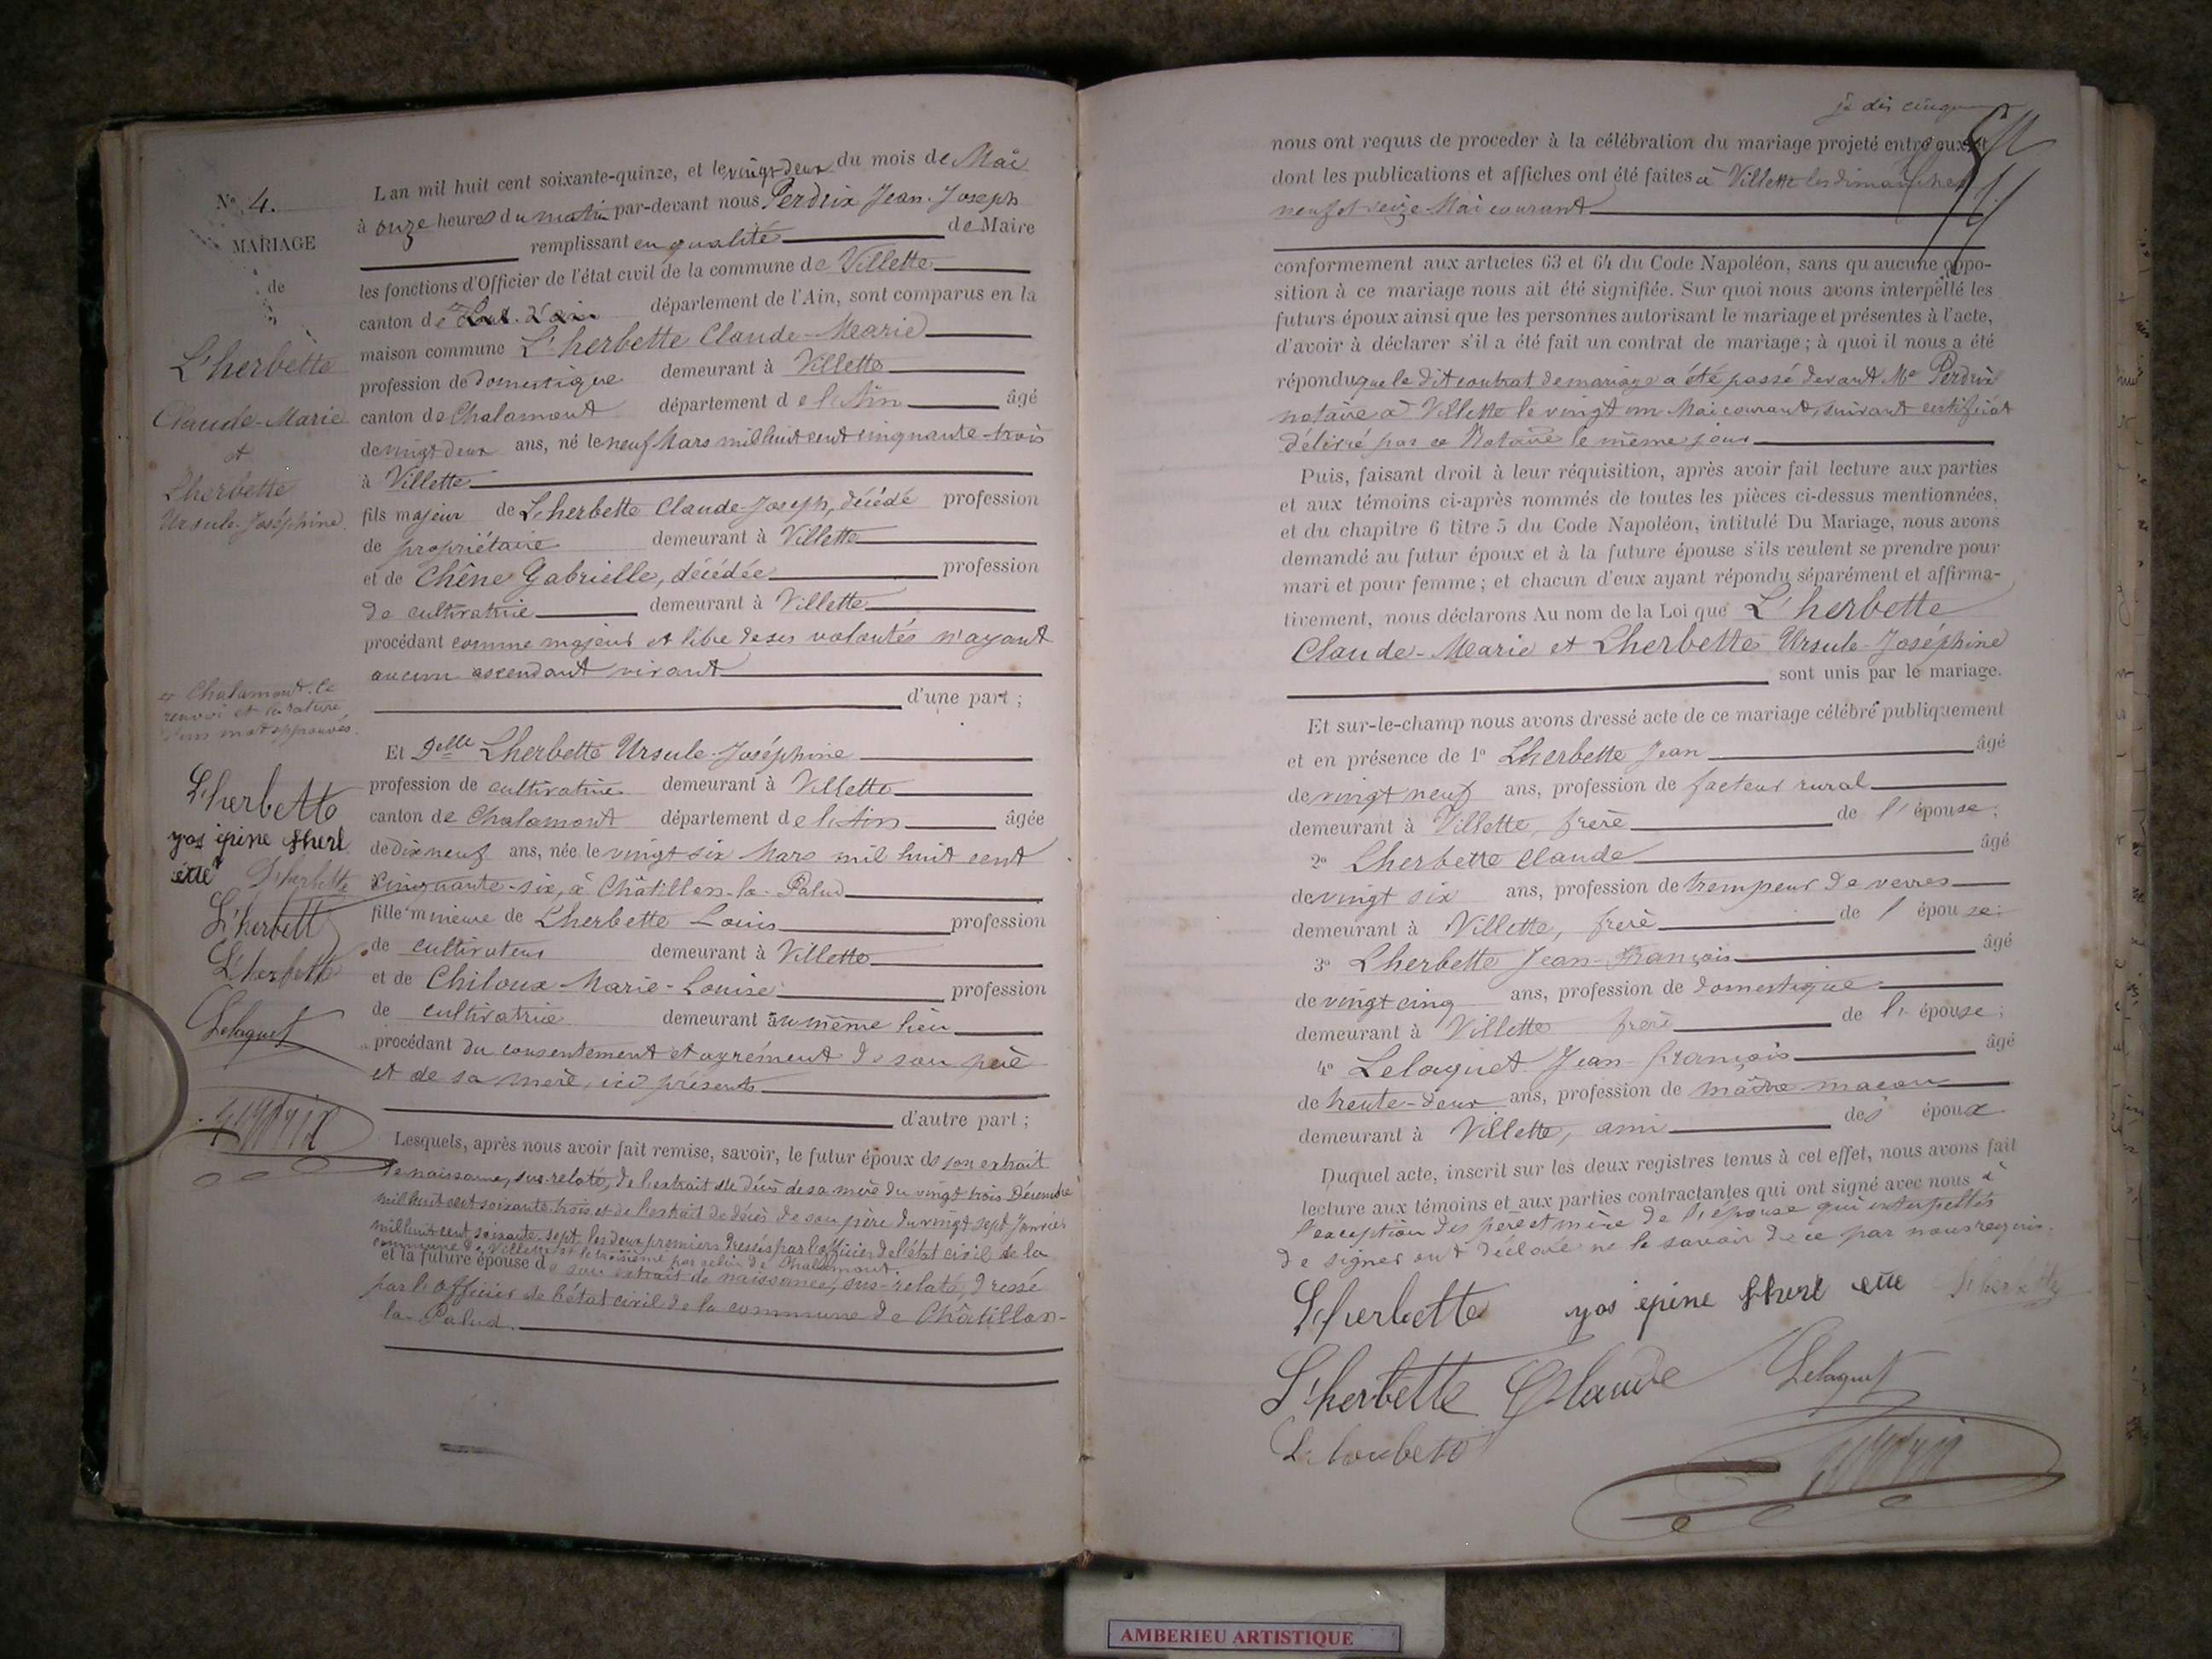 No. 4.
MARIAGE
de
L'herbette
Claude-Marie
et
Lherbette
Ursule-Joséphine.
Chalamont. le
renvoi et la rature
d'un mot approuvés.
L'herbette
yos épine Lherb
ette Lherbette
L'herbett
L'herbette
Lelaquet
L an mil huit cent soixante-quinze, et le vingt-deux du mois de Mai
à onze heures du matin par-devant nous Perdrix Jean-Joseph
remplissant en qualité de Maire
les fonctions d'Officier de l'état civil de la commune de Villette
canton de département de l'Ain, sont comparus en la
maison commune L'herbette Claude-Marie
profession de domestique demeurant à Villette
canton de Chalamont département de l'Ain âgé
de vingt deux ans, né le neuf Mars mil huit cent cinquante-trois
à Villette
fils majeur de Lherbette Claude-Joseph, décédé profession
de propriétaire demeurant à Villette
et de Chêne Gabrielle, décédée profession
de cultivatrice demeurant à Villette
procédant comme majeur et libre de ses volontés n'ayant
aucun ascendant vivant
d'une part ;
Et Delle Lherbette Ursule-Joséphine
profession de cultivatrice demeurant à Villette
canton de Chalamont département de l'Ain âgée
de dix neuf ans, née le vingt six Mars mil huit cent
cinquante-six, à Châtillon-la-Palud
fille mineure de Lherbette Louis profession
de cultivateur demeurant à Villette
et de Chiloux-Marie-Louise profession
de cultivatrice demeurant au même lieu
procédant du consentement et agrément de son père
et de sa mère, ici présents
d'autre part ;
Lesquels, après nous avoir fait remise, savoir, le futur époux de son extrait
de naissance, sus-relaté, de l'extrait de décès de sa mère du vingt trois Décembre
mil huit cent soixante trois et de l'extrait de décès de son père du vingt sept Janvier
mil huit cent soixante-sept, les deux premiers dressés par l'officier de l'état civil de la
commune de Villette et le troisième par celui de Chalamont.
et la future épouse de son extrait de naissance, sus-relaté, dressé
par l'officier de l'état civil de la commune de Châtillon-
la-Palud.
je dis cinq
nous ont requis de proceder à la célébration du mariage projeté entre eux et
dont les publications et affiches ont été faites à Villette les dimanches
neuf et seize Mai courant
conformement aux articles 63 et 64 du Code Napoléon, sans qu aucune oppo-
sition à ce mariage nous ait été signifiée. Sur quoi nous avons interpellé les
futurs époux ainsi que les personnes autorisant le mariage et présentes à l'acte,
d'avoir à déclarer s'il a été fait un contrat de mariage ; à quoi il nous a été
répondu que le dit contrat de mariage a été passé devant Me Perdrix
notaire à Villette le vingt un Mai courant, suivant certificat
délivré par ce Notaire le même jour
Puis, faisant droit à leur réquisition, après avoir fait lecture aux parties
et aux témoins ci-après nommés de toutes les pièces ci-dessus mentionnées,
et du chapitre 6 titre 5 du Code Napoléon, intitulé Du Mariage, nous avons
demandé au futur époux et à la future épouse s'ils veulent se prendre pour
mari et pour femme ; et chacun d'eux ayant répondu séparément et affirma-
tivement, nous déclarons Au nom de la Loi que L'herbette
Claude-Marie et Lherbette Ursule-Joséphine
sont unis par le mariage.
Et sur-le-champ nous avons dressé acte de ce mariage célébré publiquement
et en présence de 1º Lherbette Jean âgé
de vingt neuf ans, profession de facteur rural
demeurant à Villette, frère de l'épouse ;
2º Lherbette Claude âgé
de vingt six ans, profession de trempeur de verres
demeurant à Villette, frère de l'épouse ;
3º Lherbette Jean-François âgé
de vingt cinq ans, profession de domestique
demeurant à Villette frère de l'épouse ;
4º Lelaquet Jean-François âgé
de trente-deux ans, profession de maître maçon
demeurant à Villette, ami des époux
Duquel acte, inscrit sur les deux registres tenus à cet effet, nous avons fait
lecture aux témoins et aux parties contractantes qui ont signé avec nous à
l'exception des père et mère de l'épouse qui interpellés
de signer ont déclaré ne le savoir de ce par nous requis.
Lherbette yos épine Lherb ette
L'herbette Claude Lelaquet
AMBERIEU ARTISTIQUE